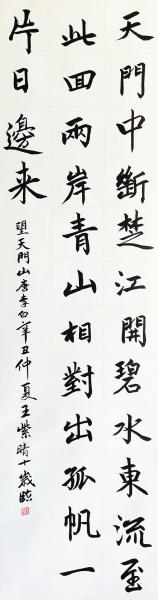 天門中斷楚江開碧水東流至
此回兩岸青山相對出孤帆一
片日邊来
望天門山唐李白辛丑仲夏王紫晴十歲臨